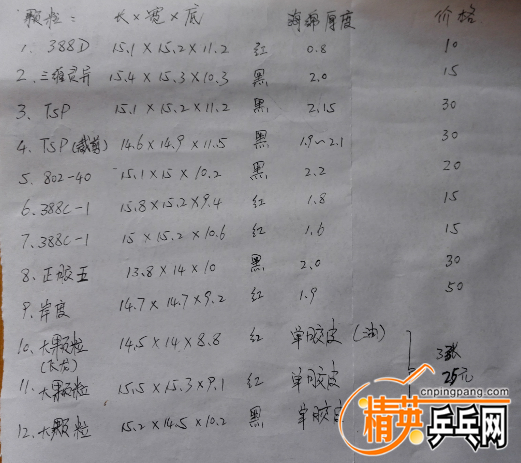 颗粒: 长×宽×底 海绵厚度 价格
1. 388D 15.1×15.2×11.2 红 0.8 10
2. 三维灵异 15.4×15.3×10.3 黑 2.0 15
3. TSP 15.1×15.2×11.2 黑 2.15 30
4. TSP 14.6×14.9×11.5 黑 1.9~2.1 30
5. 802-40 15.1×15×10.2 黑 2.2 20
6. 388C-1 15.8×15.2×9.4 红 1.8 15
7. 388C-1 15×15.2×10.6 红 1.6 15
8. 正胶王 13.8×14×10 黑 2.0 30
9. 岸度 14.7×14.7×9.2 红 1.9 50
10. 大颗粒 14.5×14×8.8 红 单胶皮 (油)
3张
11. 大颗粒 15.5×15.3×9.1 红 单胶皮
25元
12. 大颗粒 15.2×14.5×10.2 黑 单胶皮
cnpingpang.com
精英乒乓网